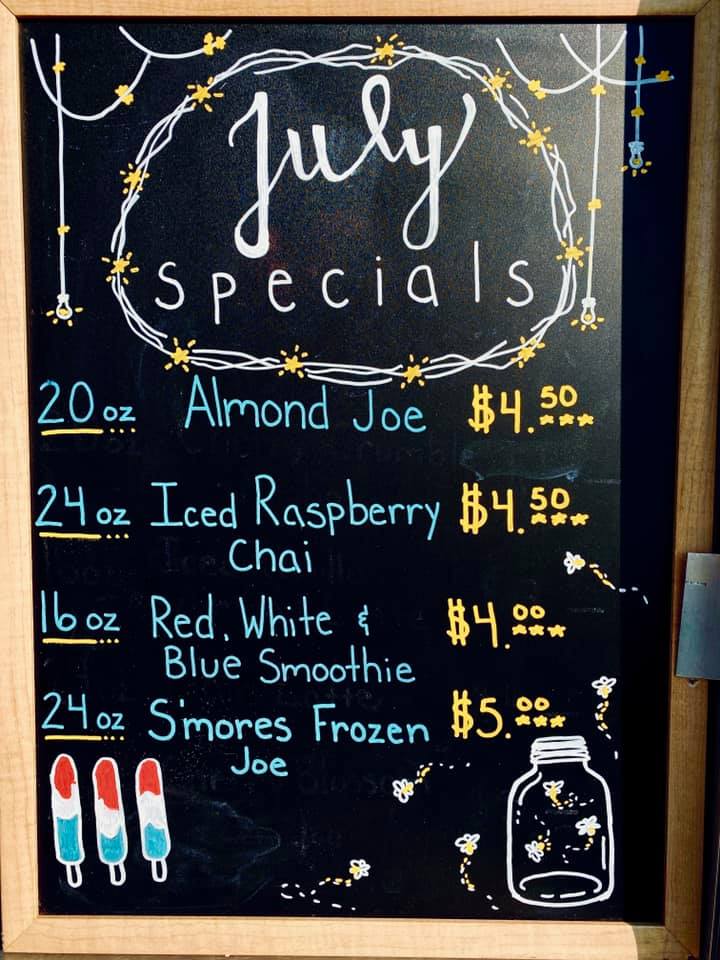 July
specials
20 oz Almond Joe $4.50
24 oz Iced Raspberry $4.50
Chai
16 oz Red, White & $4.00
Blue Smoothie
24 oz S'mores Frozen $5.00
Joe